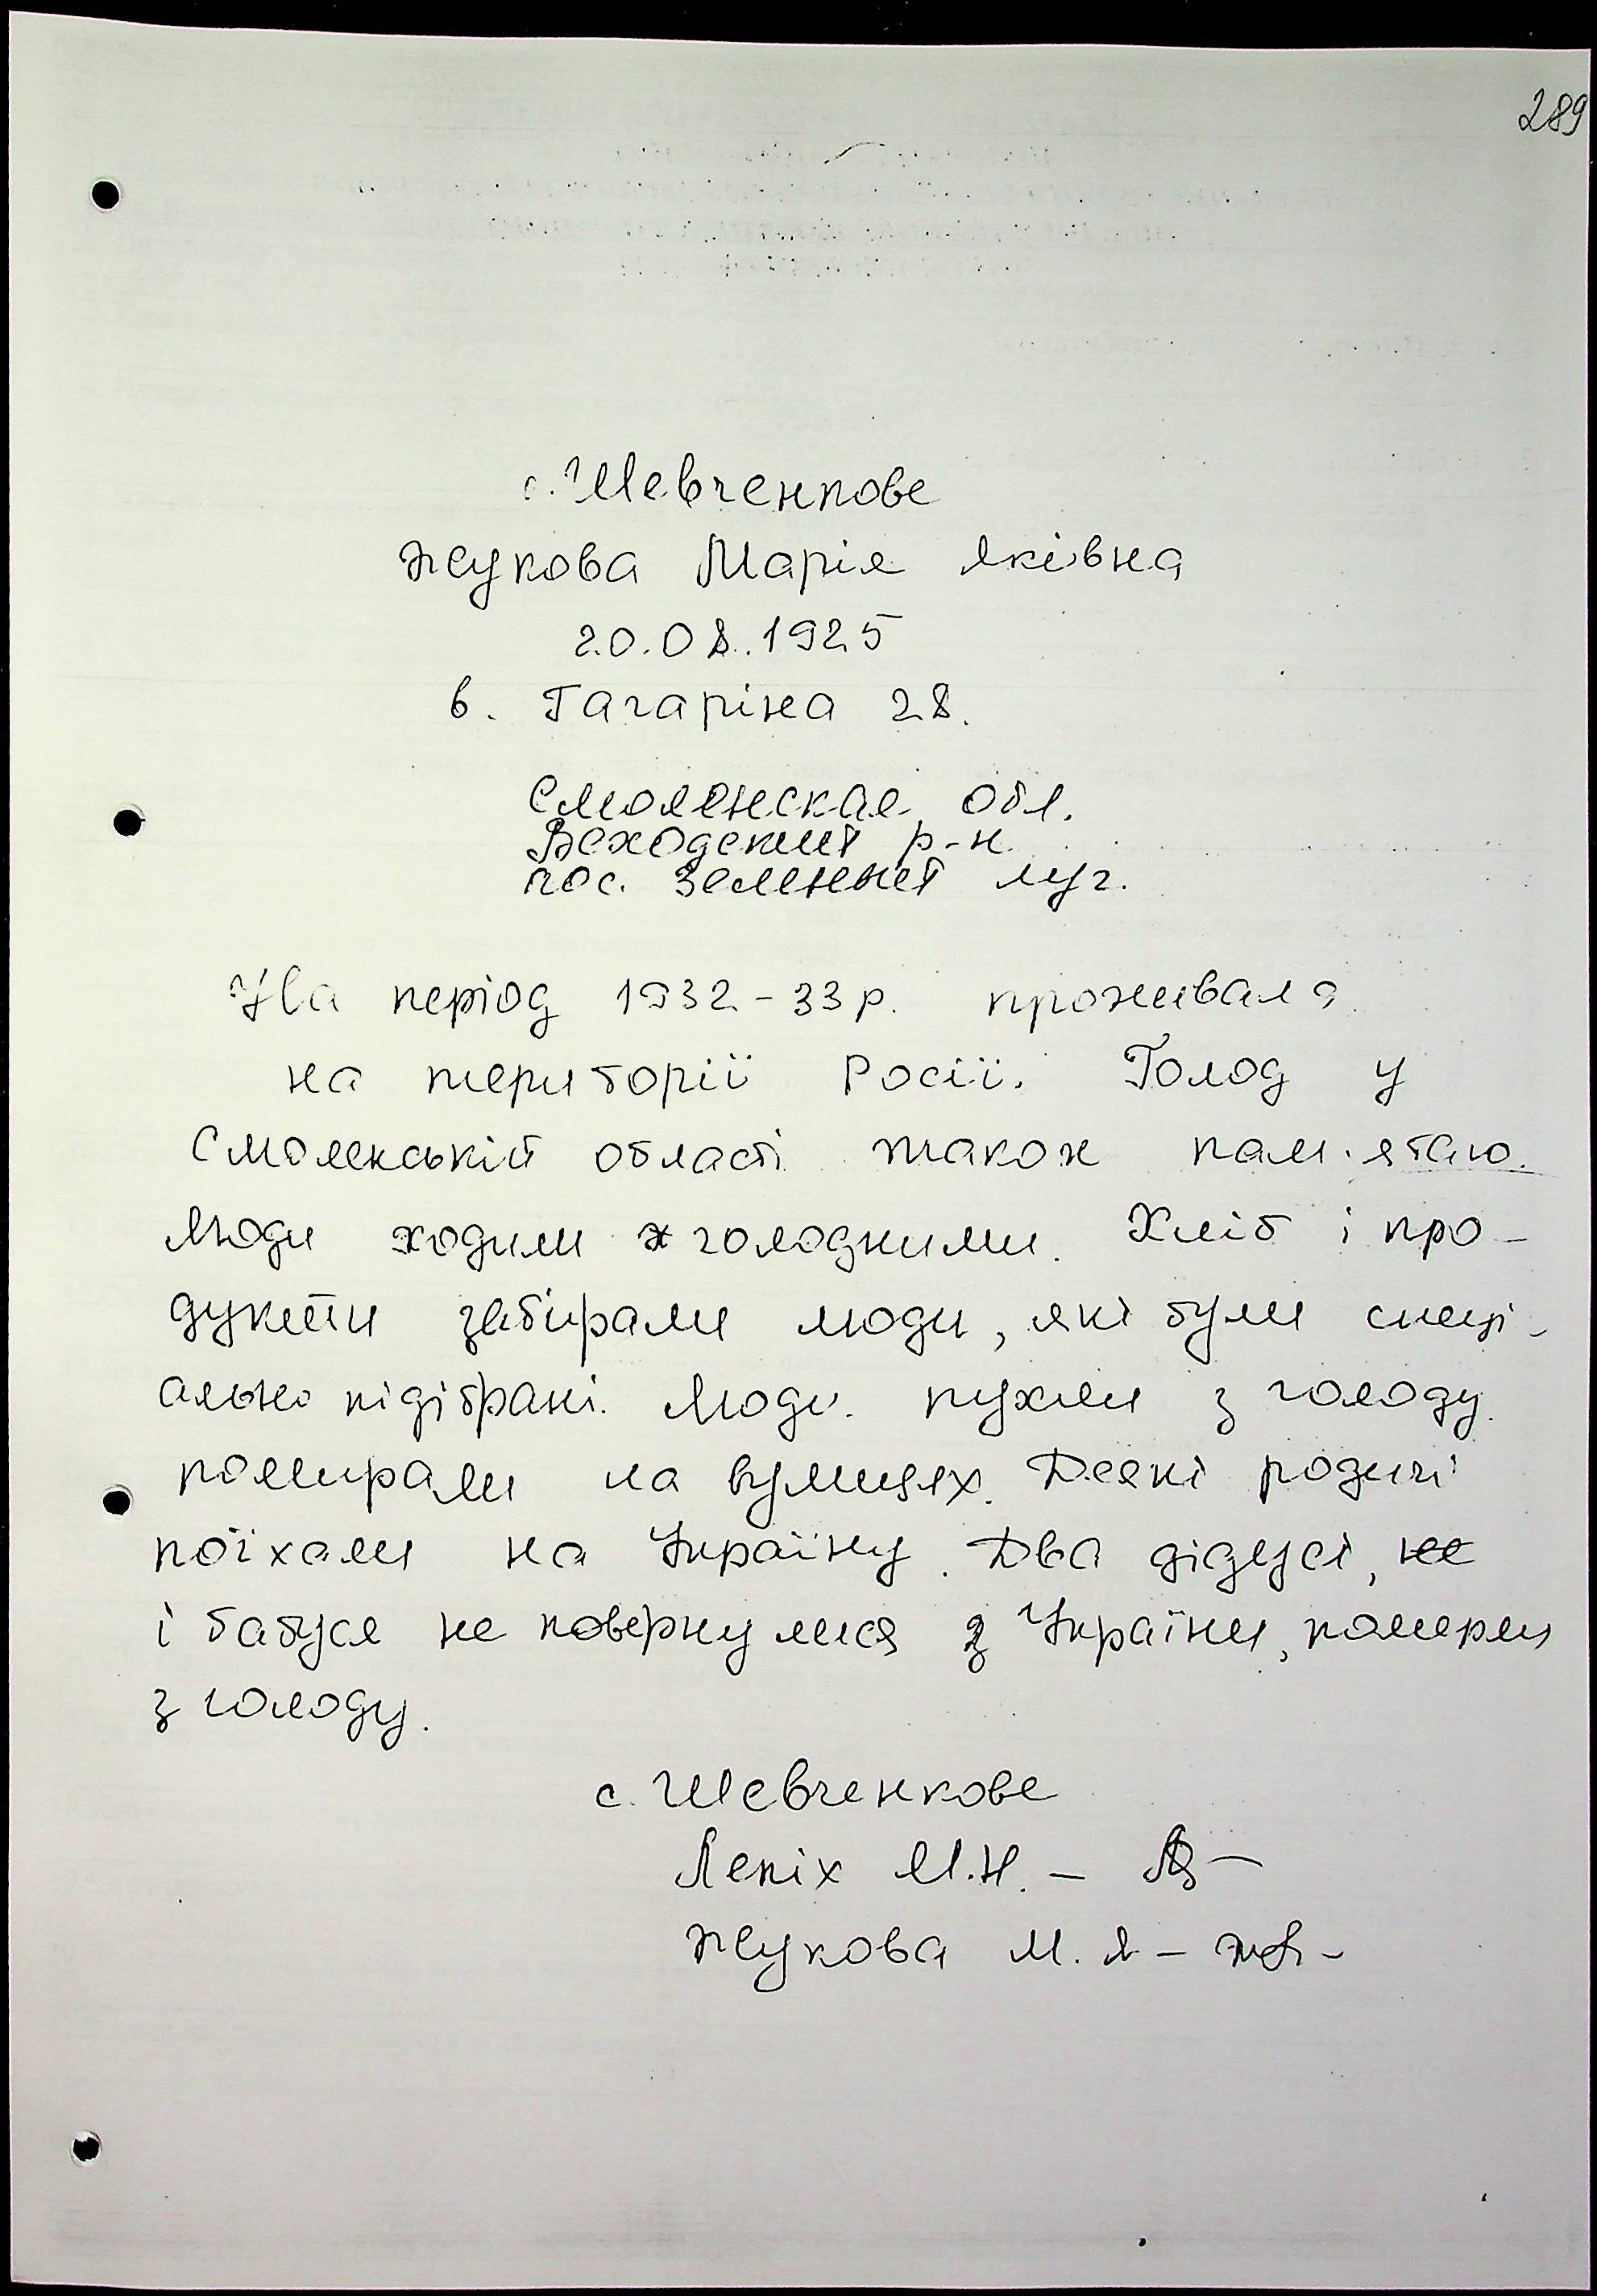 289
с. Шевченкове
Жукова Марія Яківна
20.08.1925
в. Гагаріна 28.
Смоленская обл.
Всходский р-н.
пос. Зеленый луг.
На період 1932-33 р. проживала
на території Росії. Голод у
Смоленській області також пам'ятаю.
Люди ходили голодними. Хліб і про-
дукти забирали люди, які були спеці-
ально підібрані. Люди пухли з голоду.
помирали на вулицях. Деякі родичі
поїхали на Україну. Два дідусі, не
і бабуся не повернулися з України, померли
з голоду.
с. Шевченкове
Лепіх М.Н. -
Жукова М. Я -